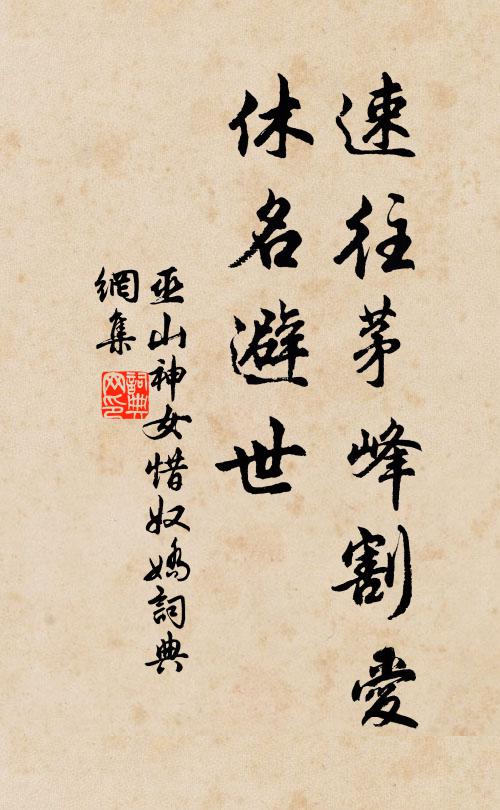 速往茅峰割愛
休名避世
巫山神女惜奴嬌詞典
網集
詞典
网印